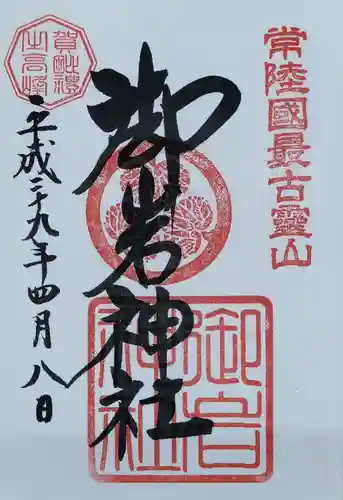 常陸國最古靈山
御岩神社
御岩神社
賀毗禮之高峰
平成二十九年四月八日